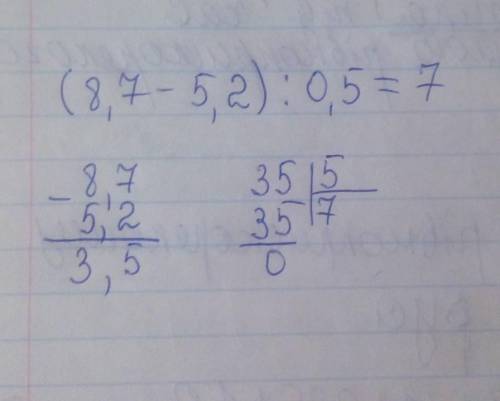 (8,7 - 5,2) : 0,5 = 7
- 8,7
5,2
3,5
35 | 5
35 | 7
0